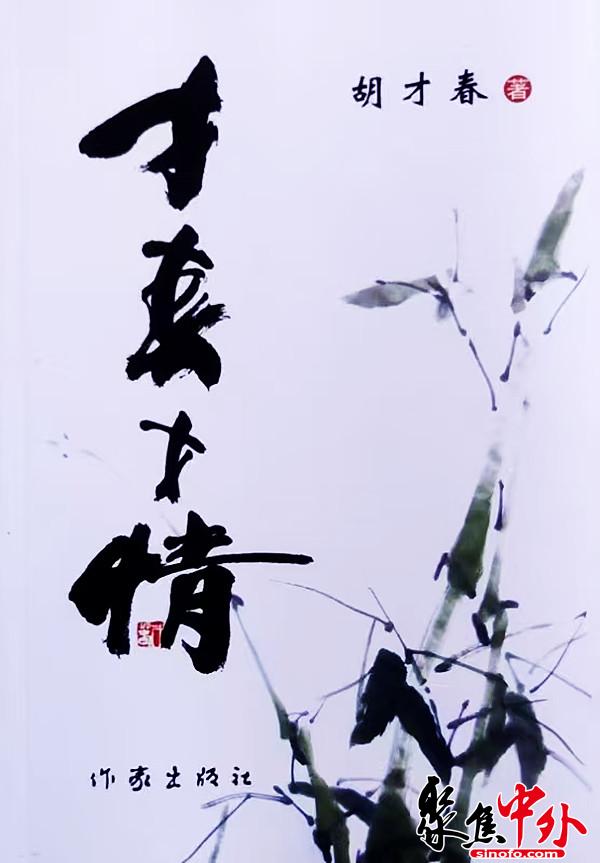 胡才春 著
才才情
作家出版社
聚焦中外
sinofo.com